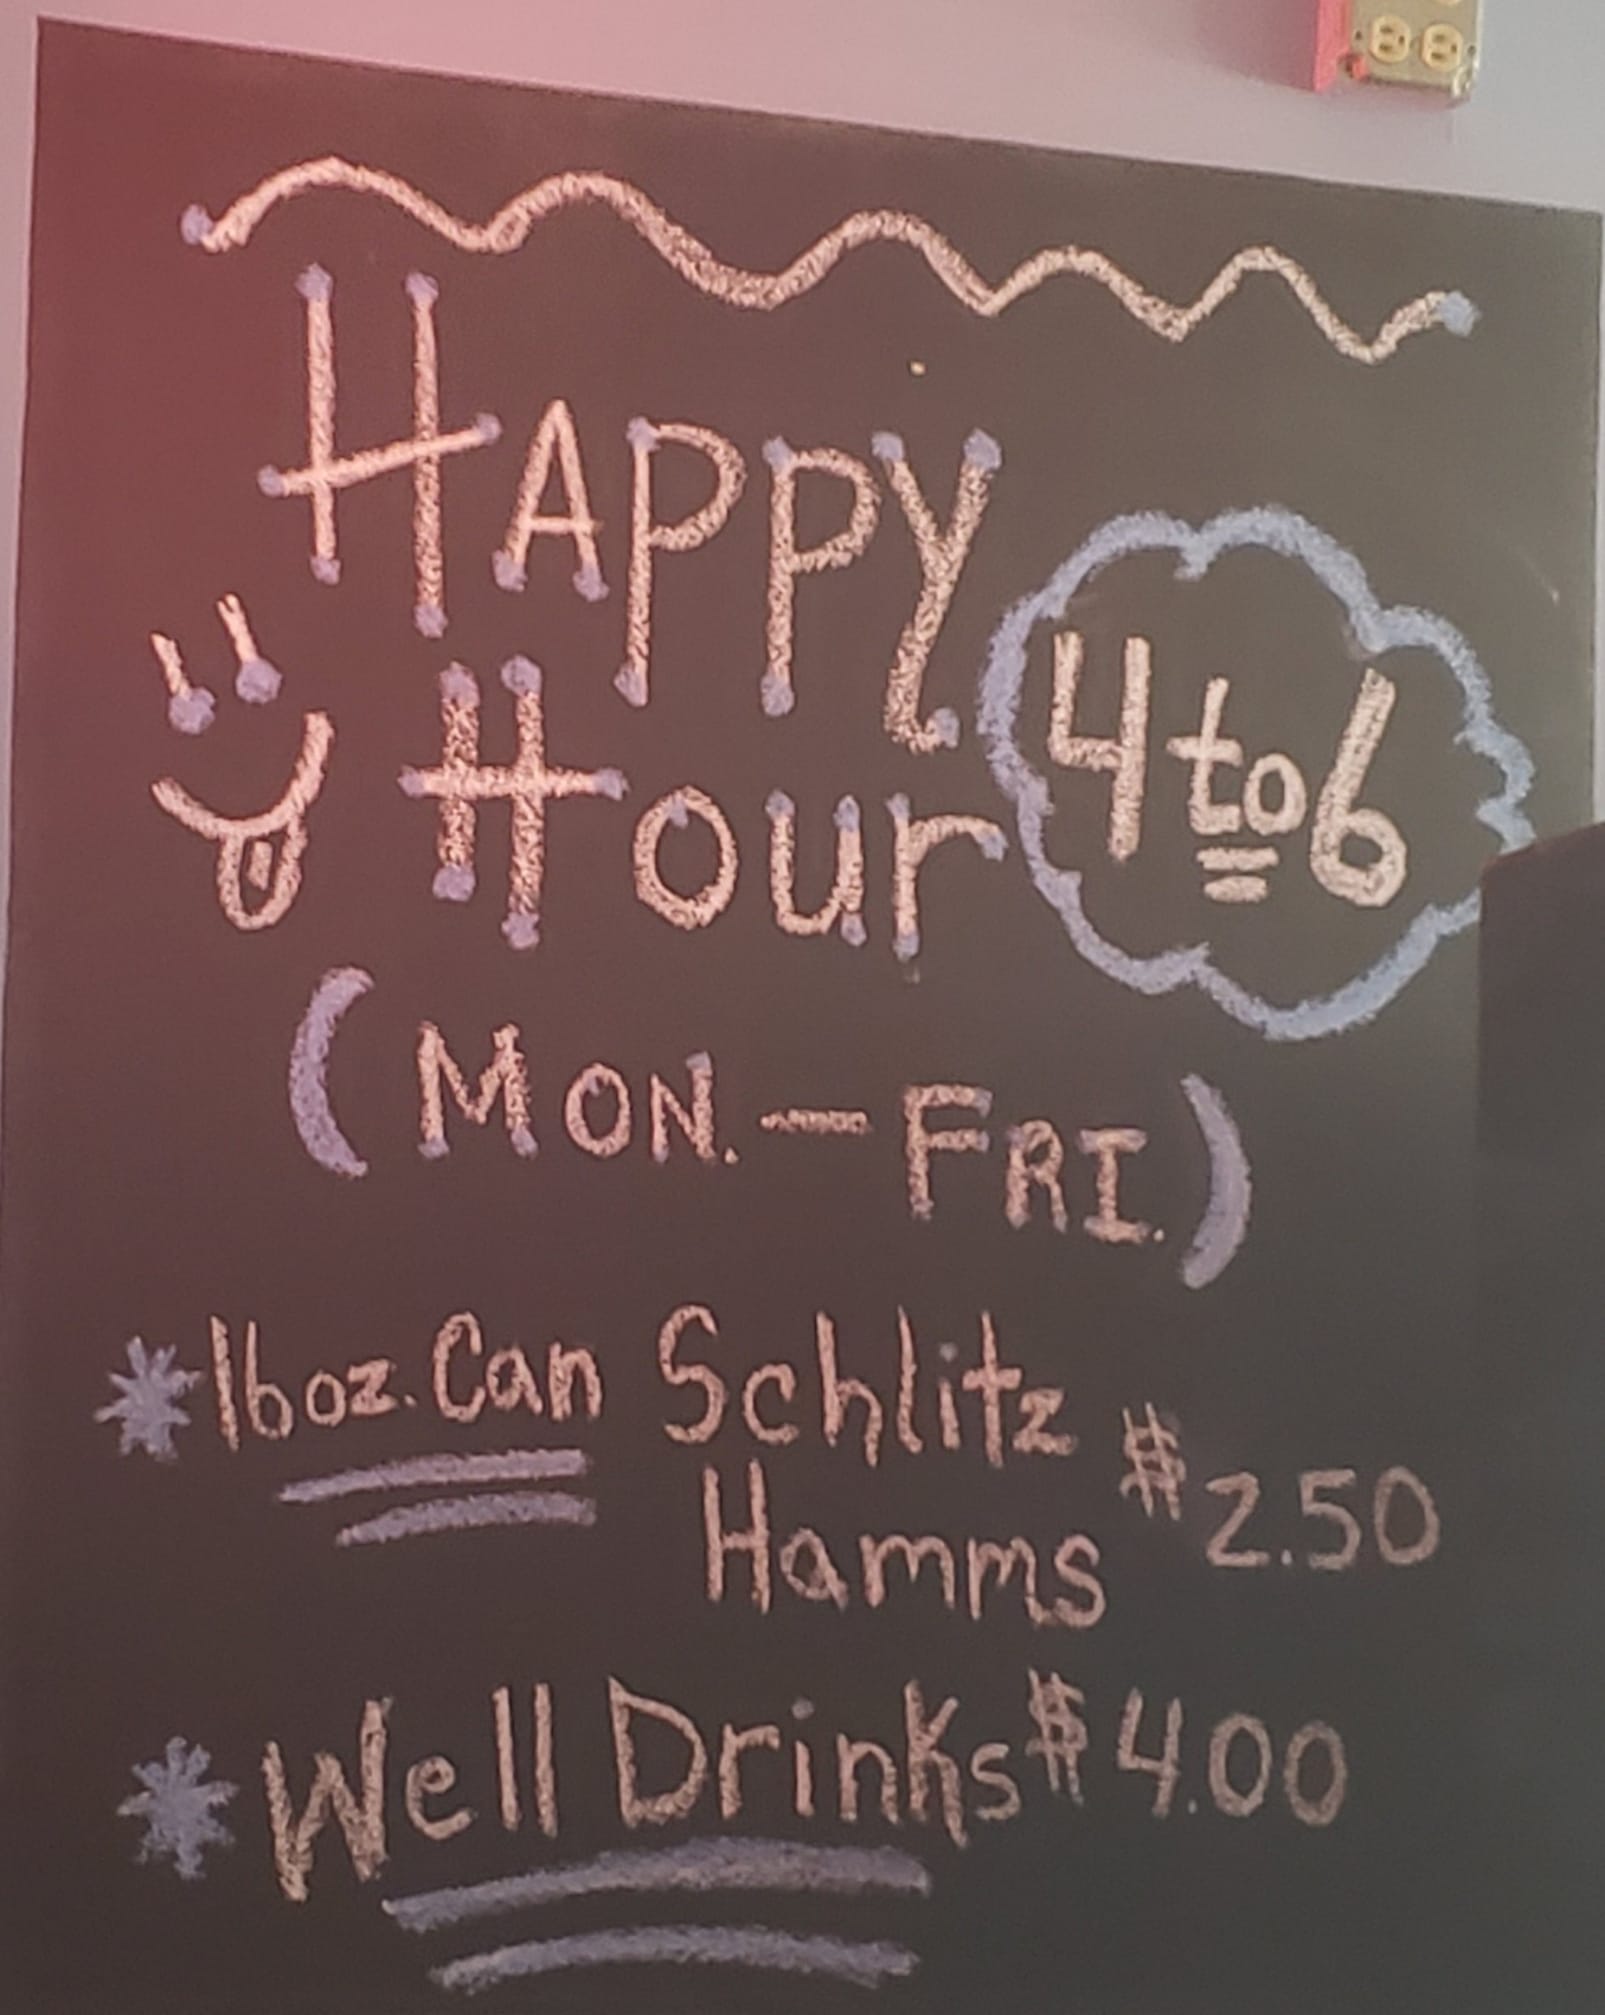 HAPPY
Hour
4 to 6
(MON. — FRI.)
*16oz. Can Schlitz
Hamms
$2.50
*Well Drinks $4.00